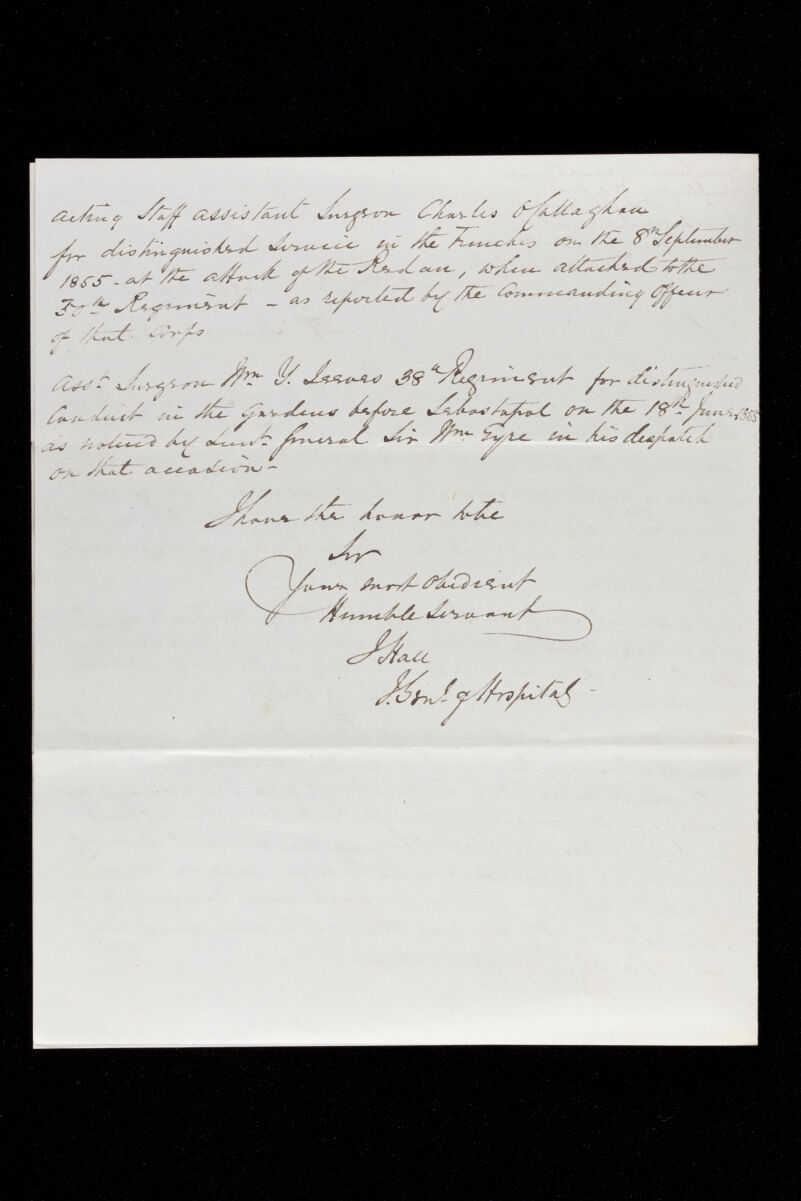 Acting Staff Assistant Surgeon Charles O'Callaghan
for distinguished service in the Trenches on the 8th September
1855 - at the attack of the Redan, when attached to the
Regiment - as reported by the Commanding Officer
of that Corps
Asst. Surgeon Wm Y. Jeeves 38th Regiment for distinguished
Conduct in the Gardens before Sebastapol on the 18th June 1855
as noticed by Lieut. General Sir Wm Eyre in his despatch
on that occasion -
I have the honor to be
Sir
Your most obedient
Humble Servant
J Hall
I. Genl. of Hospitals -